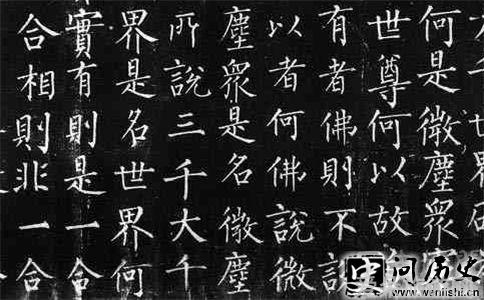 千世界
何是微塵眾
世尊何以故
有者佛則不說
以者何佛說微
塵眾是名微塵
所說三千大千
界是名世界何
實有則是一合
合相則非一合
问历史
www.wenlishi.cn